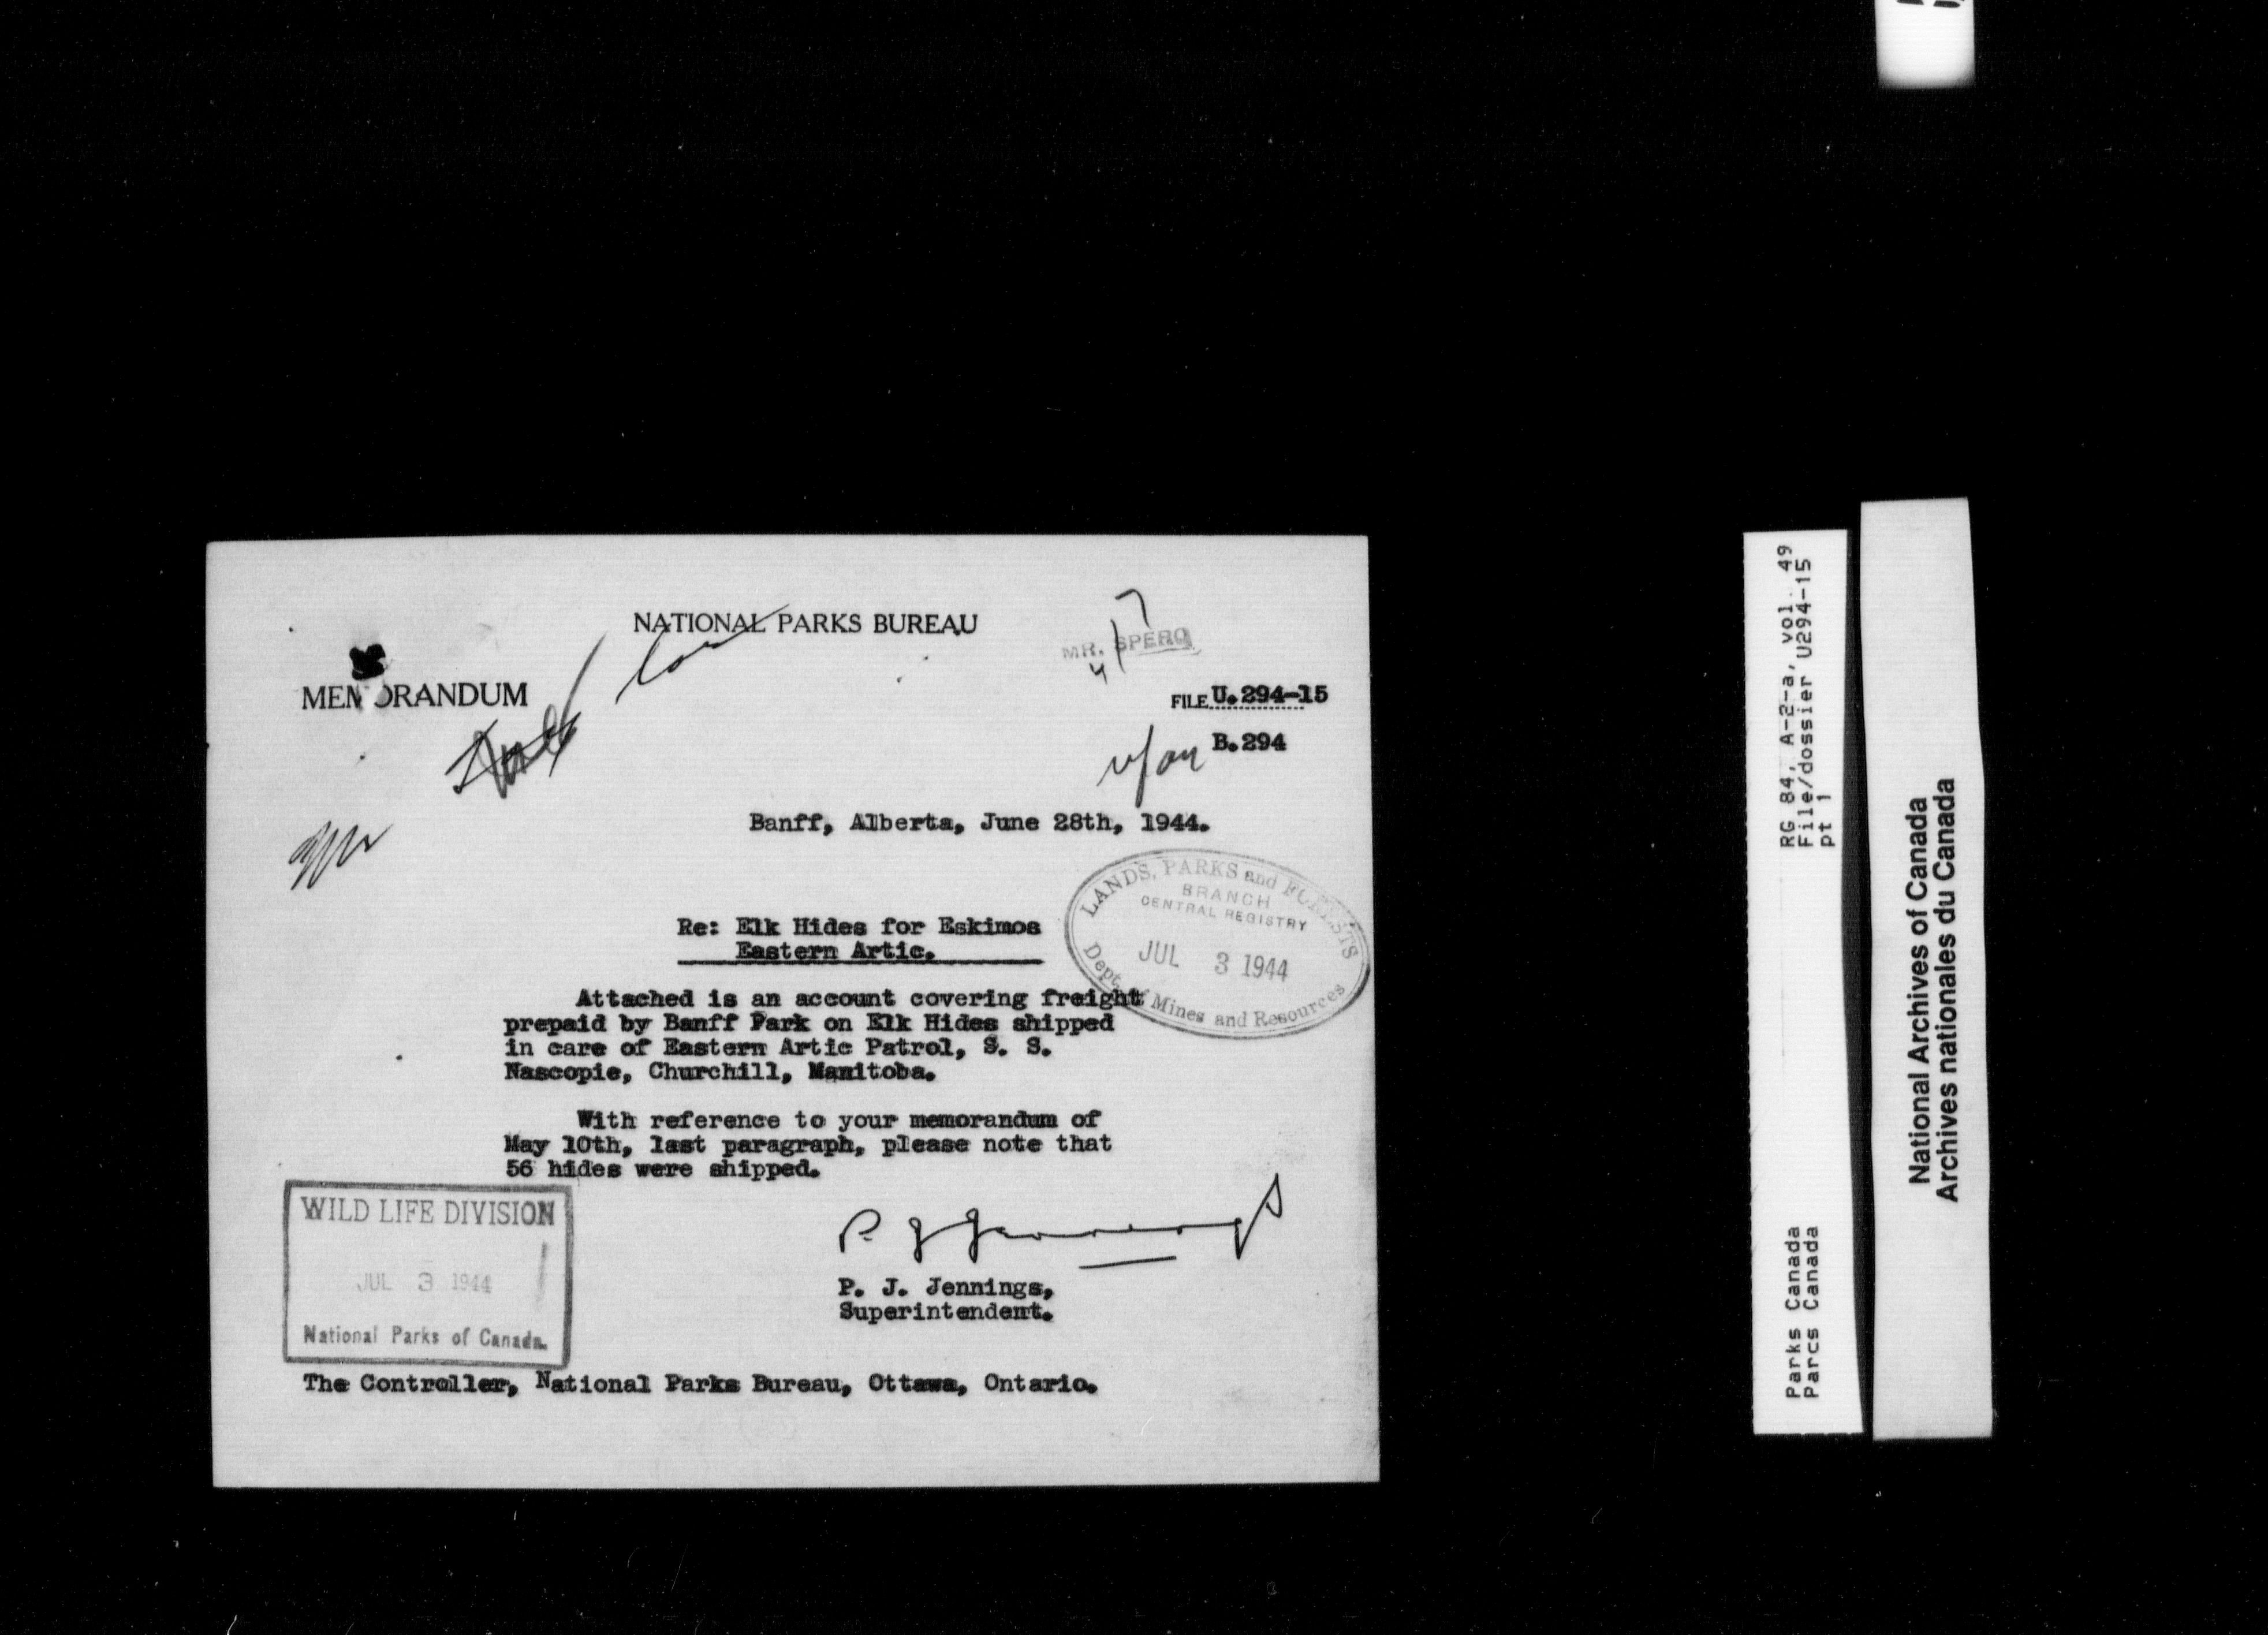 NATIONAL PARKS BUREAU
MR. SPERO
MEMORANDUM
FILE U.294-15
B.294
Banff, Alberta, June 28th, 1944.
LANDS, PARKS and FORESTS
BRANCH
CENTRAL REGISTRY
JUL 3 1944
Dept. of Mines and Resources
Re: Elk Hides for Eskimos
Eastern Artic.
Attached is an account covering freight
prepaid by Banff Park on Elk Hides shipped
in care of Eastern Artic Patrol, S. S.
Nascopie, Churchill, Manitoba.
With reference to your memorandum of
May 10th, last paragraph, please note that
56 hides were shipped.
WILD LIFE DIVISION
JUL 3 1944
National Parks of Canada.
P. J. Jennings
P. J. Jennings,
Superintendent.
The Controller, National Parks Bureau, Ottawa, Ontario.
RG 84, A-2-a, vol. 49
File/dossier U294-15
pt 1
Parks Canada
Parcs Canada
National Archives of Canada
Archives nationales du Canada